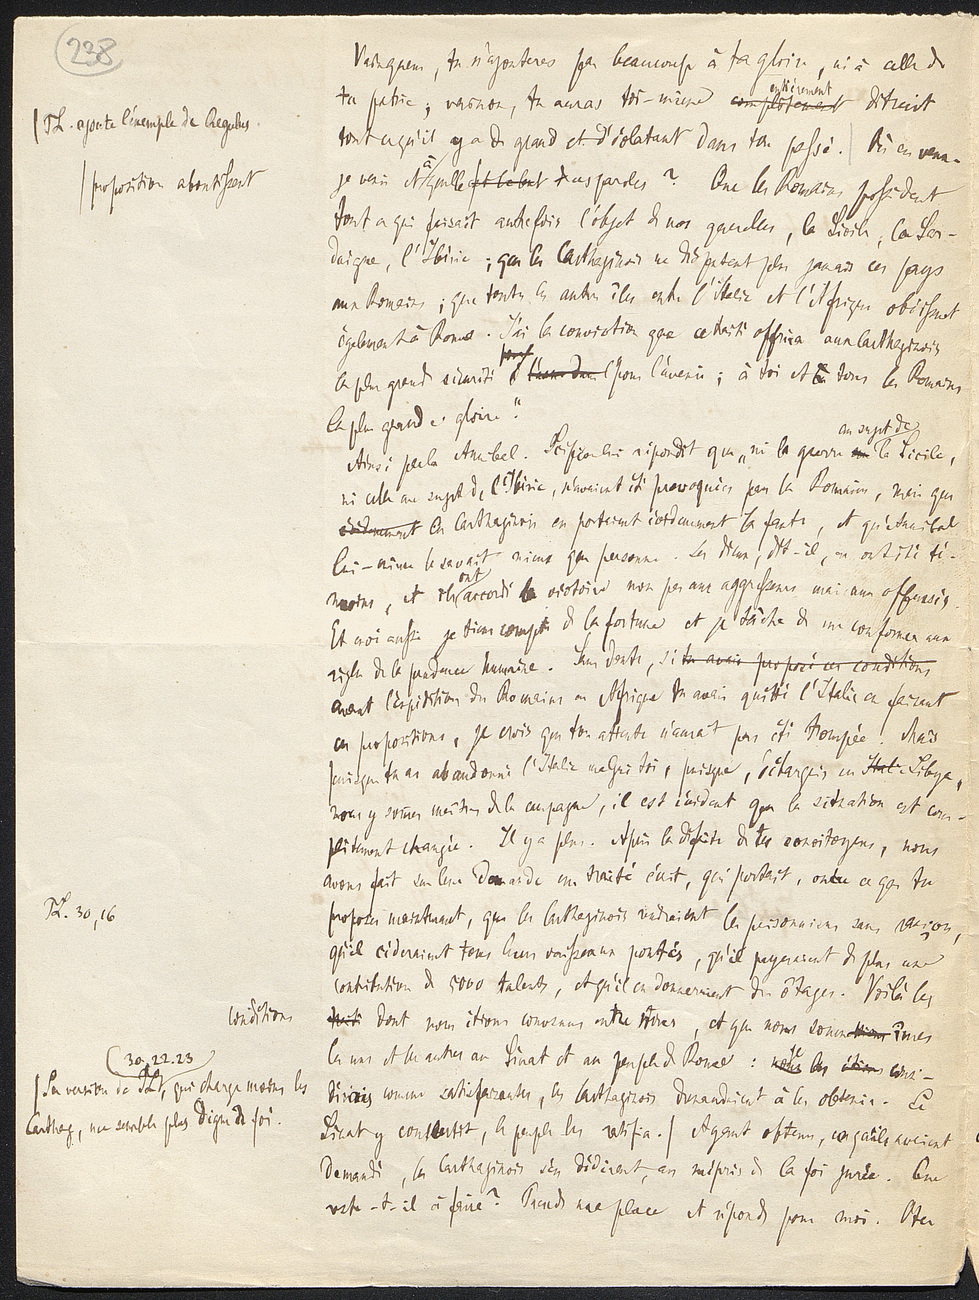 238
Vainqueur, tu n'ajouteras pas beaucoup à ta gloire, ni à celle de
entièrement
ta patrie ; vaincu, tu auras toi-même complètement détruit
| TL. ajoute l'exemple de Regulus.
tout ce qu'il y a de grand et d'éclatant dans ton passé. | Où en veux-
| proposition aboutissent
je venir et à quelle est le but tu as paroles ? Que les Romains possèdent
tout ce qui faisait autrefois l'objet de nos querelles, la Sicile, la Sar-
daigne, l'Ibérie ; que les Carthaginois ne disputent plus jamais ces pays
aux Romains ; que toutes les autres îles entre l'Italie et l'Afrique obéissent
également à Rome. J'ai la conviction que ce traité offrira aux Carthaginois
pour
la plus grande sécurité pour l'avenir ; à toi et à tous les Romains
la plus grande gloire."
au sujet de
Ainsi parla Annibal. Scipion lui répondit que „ni la guerre la Sicile,
ni celle au sujet de l'Ibérie, n'avaient été provoquées par les Romains, mais que
évidemment les Carthaginois en portaient évidemment la faute, et qu'Annibal
lui-même le savait mieux que personne. Les dieux, dit-il, en ont été té-
ont
moins, et ils accordé la victoire non pas aux aggresseurs mais aux offensés.
Et moi aussi je tiens compte de la fortune et je tâche de me conformer aux
règles de la prudence humaine. Sans doute, si tu avais proposé ces conditions
avant l'expédition des Romains en Afrique tu avais quitté l'Italie en faisant
ces propositions, je crois que ton attente n'aurait pas été trompée. Mais
puisque tu as abandonné l'Italie malgré toi, puisque, débarqués en Italie Libye,
nous y sommes maîtres de la campagne, il est évident que la situation est com-
plètement changée. Il y a plus. Après la défaite de tes concitoyens, nous
avons fait sur leur demande un traité écrit, qui portait, outre ce que tu
TL. 30,16
proposes maintenant, que les Carthaginois rendraient les prisonniers sans rançon,
qu'il céderaient tous leurs vaisseaux pontés, qu'il payeraient de plus une
contribution de 5000 talents, et qu'il en donneraient des ôtages. Voilà les
conditions
dont nous étions convenus entre nous, et que nous soumîmes
30, 22.23
les uns et les autres au Sénat et au peuple de Rome : nous les étions consi-
| La version de TL, qui charge moins les
dérions comme satisfaisantes, les Carthaginois demandaient à les obtenir. Le
Carthag, me semble plus digne de foi.
Sénat y consentit, le peuple les ratifia. | Ayant obtenu, ce qu'ils avaient
demandé, les Carthaginois s'en dédirent, au mépris de la foi jurée. Que
reste-t-il à faire ? Prends ma place et réponds pour moi. Oter